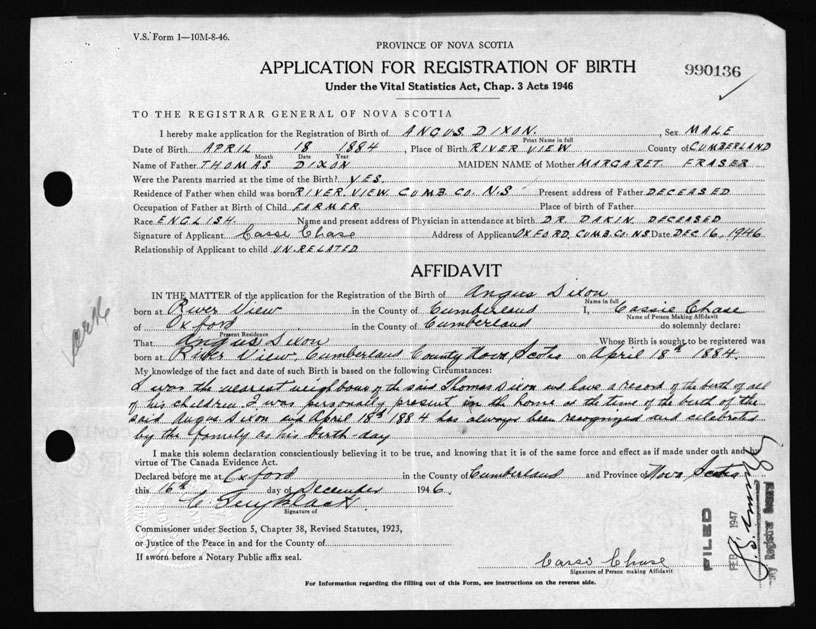 V.S. Form 1—10M-8-46.
PROVINCE OF NOVA SCOTIA
APPLICATION FOR REGISTRATION OF BIRTH
990136
Under the Vital Statistics Act, Chap. 3 Acts 1946
TO THE REGISTRAR GENERAL OF NOVA SCOTIA
I hereby make application for the Registration of Birth of ANGUS DIXON. , Sex MALE
Print Name in full
Date of Birth APRIL 18 1884 , Place of Birth RIVER VIEW County of CUMBERLAND
Month Date Year
Name of Father THOMAS DIXON MAIDEN NAME of Mother MARGARET FRASER
Were the Parents married at the time of the Birth? YES.
Residence of Father when child was born RIVER VIEW CUMB. CO. N.S Present address of Father DECEASED
Occupation of Father at Birth of Child FARMER Place of birth of Father
Race ENGLISH. Name and present address of Physician in attendance at birth DR. DAKIN, DECEASED
Signature of Applicant Cassie Chase Address of Applicant OXFORD, CUMB. CO. N.S. Date DEC 16, 1946
Relationship of Applicant to child UN-RELATED
AFFIDAVIT
IN THE MATTER of the application for the Registration of the Birth of Angus Dixon
Name in full
born at River View in the County of Cumberland I, Cassie Chase
Name of Person Making Affidavit
of Oxford in the County of Cumberland do solemnly declare:
Present Residence
That Angus Dixon Whose Birth is sought to be registered was
born at River View, Cumberland County Nova Scotia on April 18th 1884.
My knowledge of the fact and date of such Birth is based on the following Circumstances:
I was the nearest neighbour of the said Thomas Dixon and have a record of the birth of all
of his children I was personally present in the home at the time of the birth of the
said Angus Dixon and April 18th 1884 has always been recognized and celebrated
by the family as his birth day
I make this solemn declaration conscientiously believing it to be true, and knowing that it is of the same force and effect as if made under oath and by
virtue of The Canada Evidence Act.
Declared before me at Oxford in the County of Cumberland and Province of Nova Scotia
this 16th day of December 1946.
Signature of
Commissioner under Section 5, Chapter 38, Revised Statutes, 1923,
or Justice of the Peace in and for the County of
If sworn before a Notary Public affix seal.
Cassie Chase
Signature of Person making Affidavit
For Information regarding the filling out of this Form, see instructions on the reverse side.
FILED
FEB 1947
Registrar